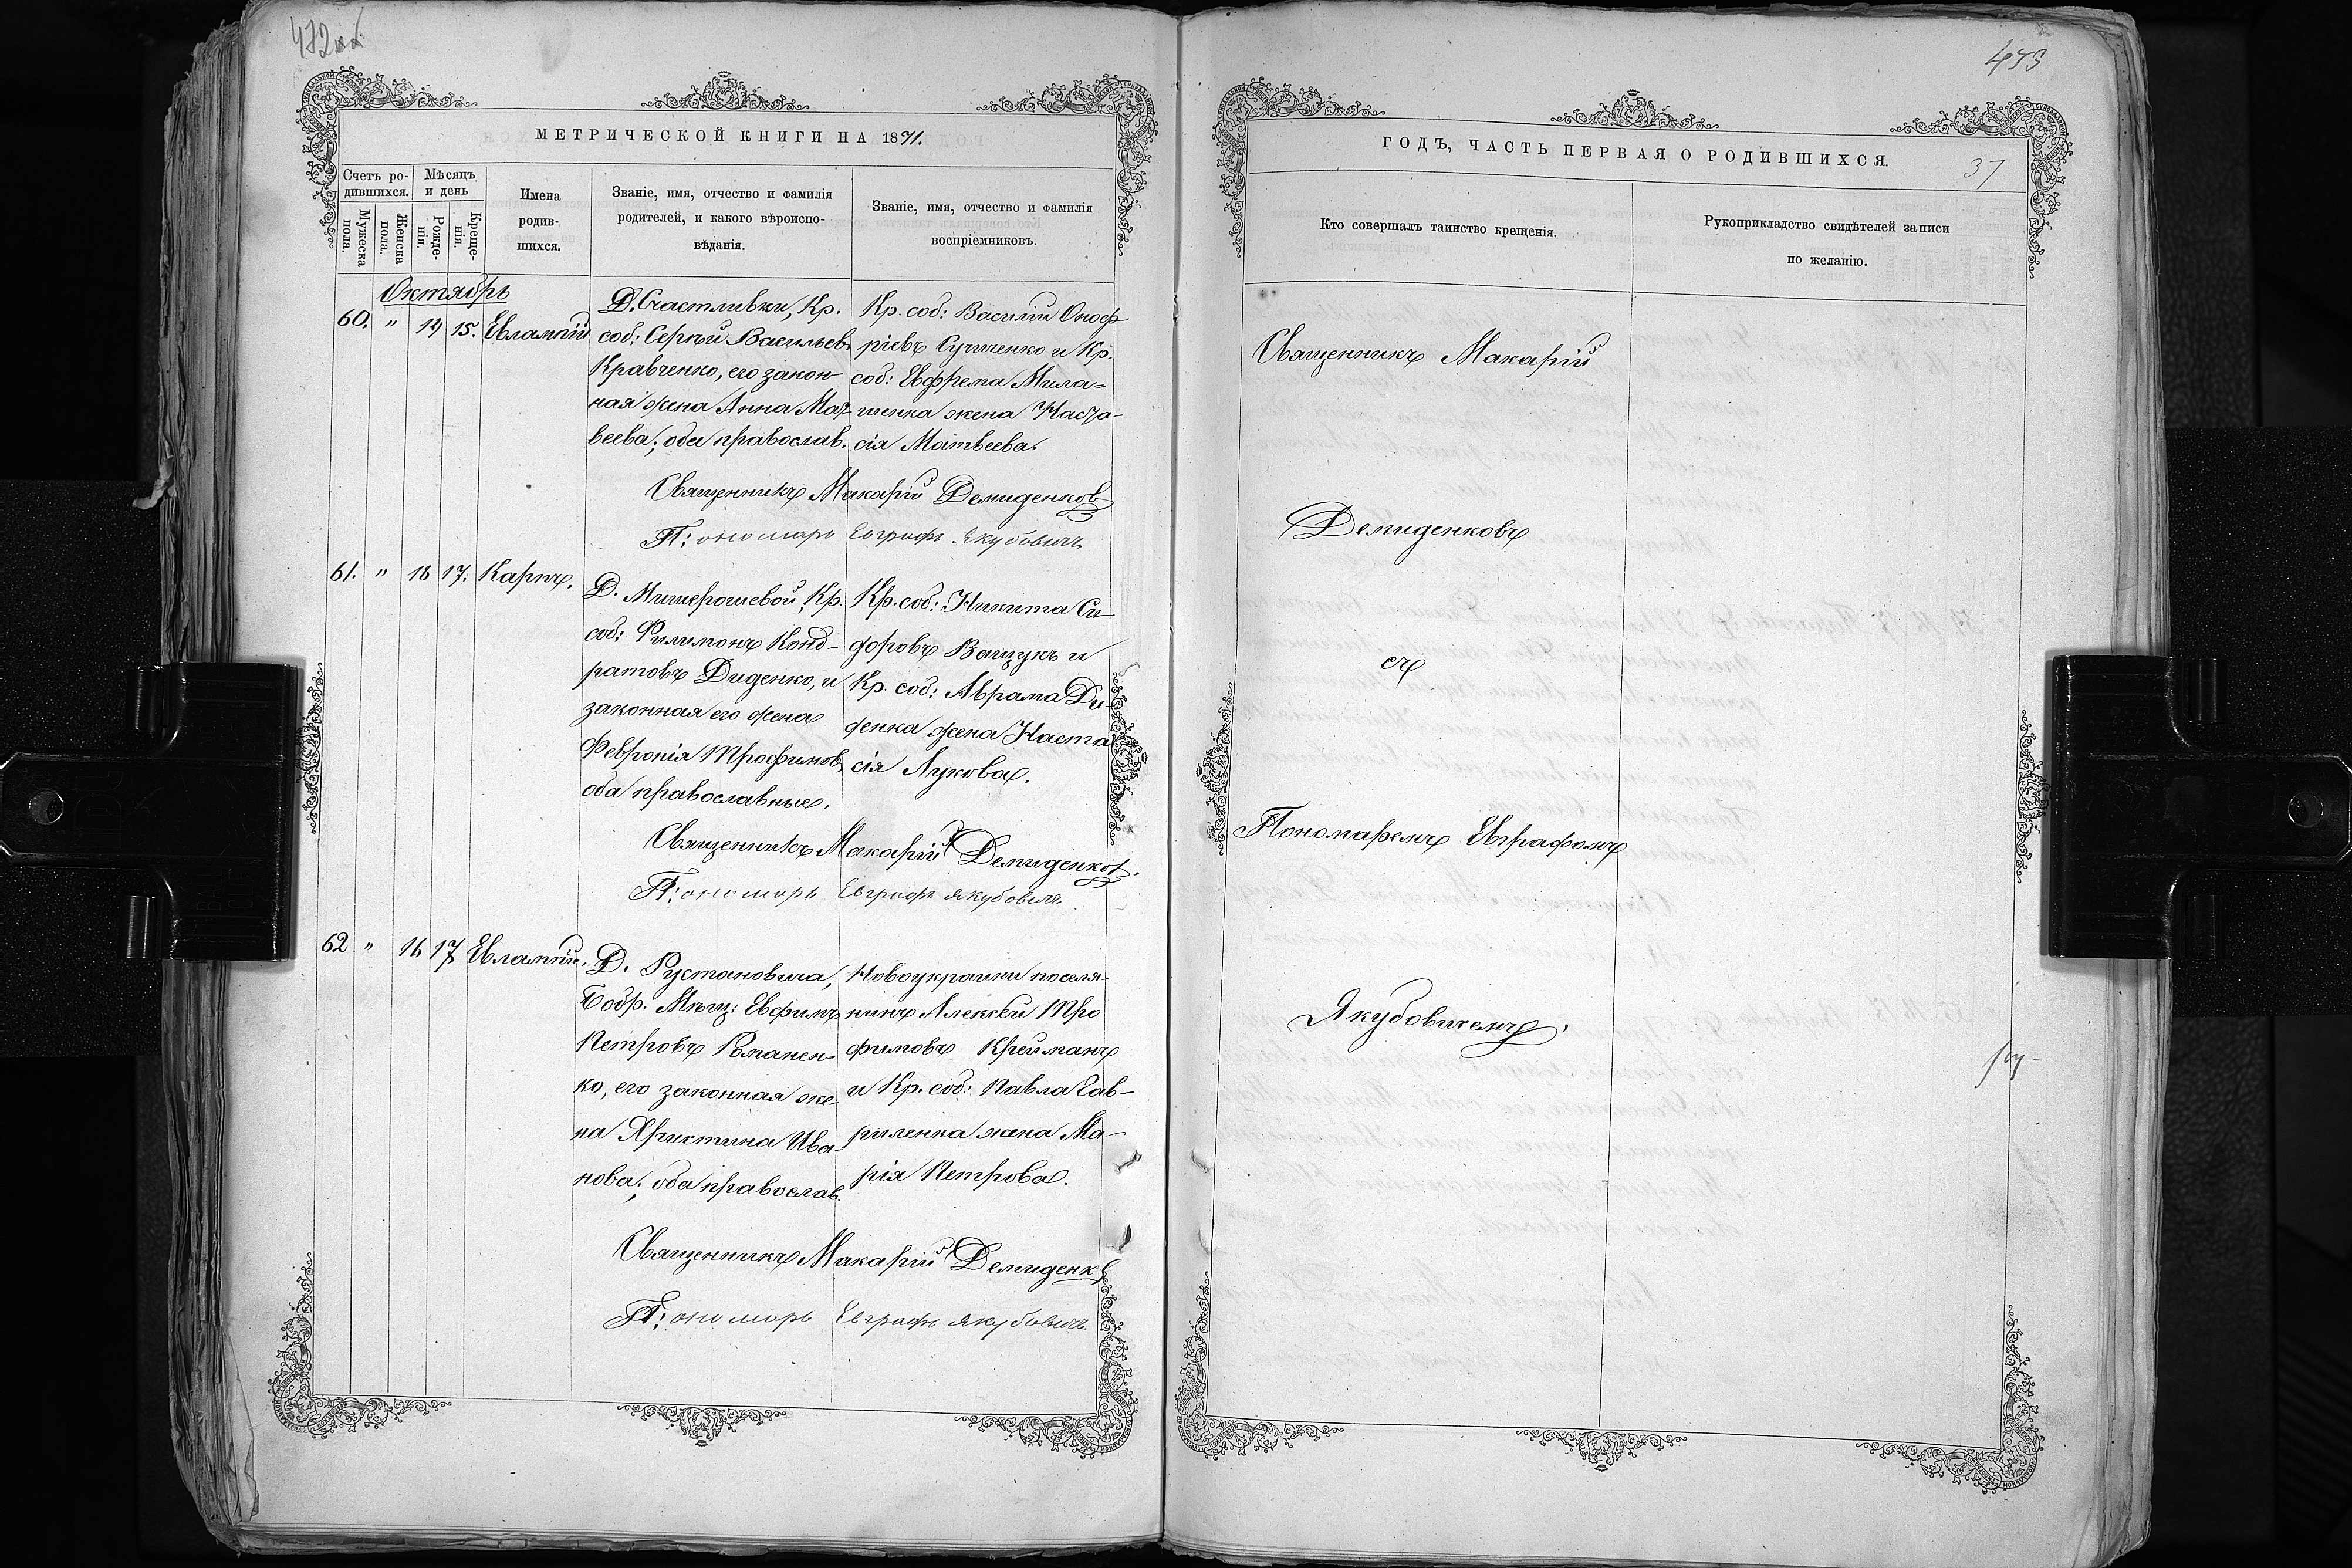 472 об
МЕТРИЧЕСКОЙ КНИГИ НА 1871.
Счетъ родившихся.
Мѣсяцъ и день
Имена родившихся.
Званіе, имя, отчество и фамилія родителей, и какого вѣроисповѣданія.
Званіе, имя, отчество и фамилія воспріемниковъ.
Мужеска пола.
Женска пола.
Рожденія.
Крещенія.
Октябрь
60. " 14 15. Евлампій
Д. Счастливки, Кр.
соб: Сергѣй Васильев.
Кравченко, его закон-
ная жена Анна Мат-
веева; оба православ.
Кр. соб: Василій Оноф
ріевъ Сущенко и Кр.
соб: Евфрема Мила=
шенка жена Наста-
сія Матвеева.
Священникъ Макарій Демиденков
П: ономарь Евграфъ Якубовичъ
61. " 16 17. Карпъ.
Д. Мишерошевой, Кр.
соб: Филимонъ Конд-
ратовъ Диденко, и
законная его жена
Февронія Трофимов.
оба православные.
Кр. соб: Никита Си
форовъ Ващукъ и
Кр. соб: Аврама Ди-
денка жена Наста
сія Лукова.
Священникъ Макарій Демиденков.
П: ономарь Евграфъ Якубовичъ
62 " 16 17 Евлампій.
Д. Рустановича,
Бобр. Мѣщ: Евфимъ
Петровъ Романен-
ко, его законная же-
на Христина Ива-
нова; оба православ.
Новоукраинки поселя-
нинъ Алексѣй Тро
фимовъ Крейманъ
и Кр. соб: Павла Гав-
риленка жена Ма-
рія Петрова.
Священникъ Макарій Демиденк
П: ономарь Евграфъ Якубовичъ
473
ГОДЪ, ЧАСТЬ ПЕРВАЯ О РОДИВШИХСЯ.
37
Кто совершалъ таинство крещенія.
Рукоприкладство свидѣтелей записи
по желанію.
Священникъ Макарій
Демиденковъ
съ
Пономаремъ Евграфомъ
Якубовичемъ.